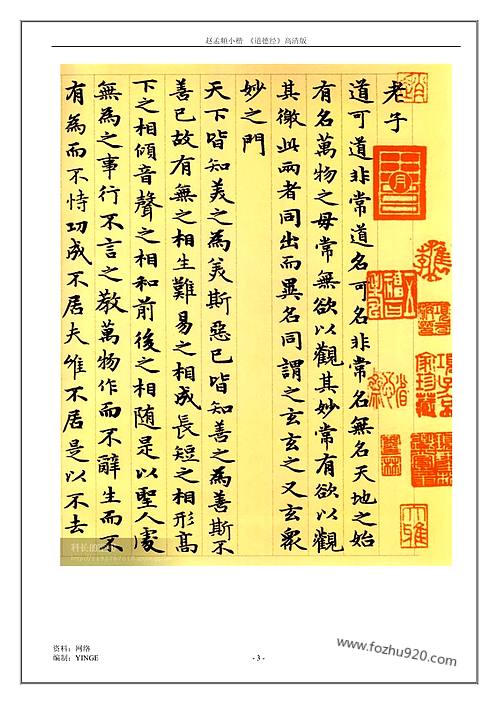 赵孟頫小楷 《道德经》高清版
老子
道可道非常道名可名非常名無名天地之始
有名萬物之母常無欲以觀其妙常有欲以觀
其徼此兩者同出而異名同謂之玄玄之又玄衆
妙之門
天下皆知美之為美斯惡已皆知善之為善斯不
善已故有無之相生難易之相成長短之相形高
下之相傾音聲之相和前後之相随是以聖人處
無為之事行不言之教萬物作而不辭生而不
有為而不恃功成不居夫惟不居是以不去
项子京
家珍藏
资料：网络
编制：YINGE
- 3 -
www.fozhu920.com